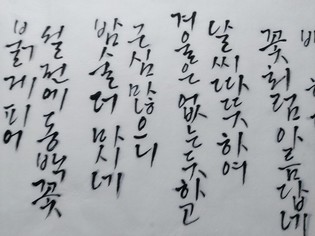 꽃처럼아름답네
날씨따뜻하여
겨울은없는듯하고
근심많으니
밤술더마시네
설전에동백꽃
붉게피어